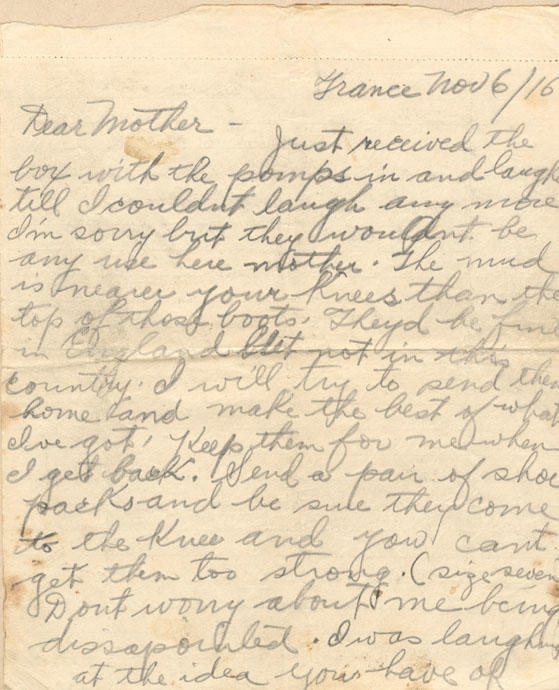 France Nov 6/16
Dear Mother -
Just received the
box with the pomps in and laugh
till I couldnt laugh any more
I'm sorry but they wouldnt be
any use here mother. The mud
is nearer your knees than the
top of those boots. Theyd be fine
in England but not in this
country. I will try to send them
home and make the best of what
I've got. Keep them for me when
I get back. Send a pair of shoe
packs and be sure they come
to the knee and you cant
get them too strong. (size seven
Dont worry about me being
dissapointed. I was laughing
at the idea you have of